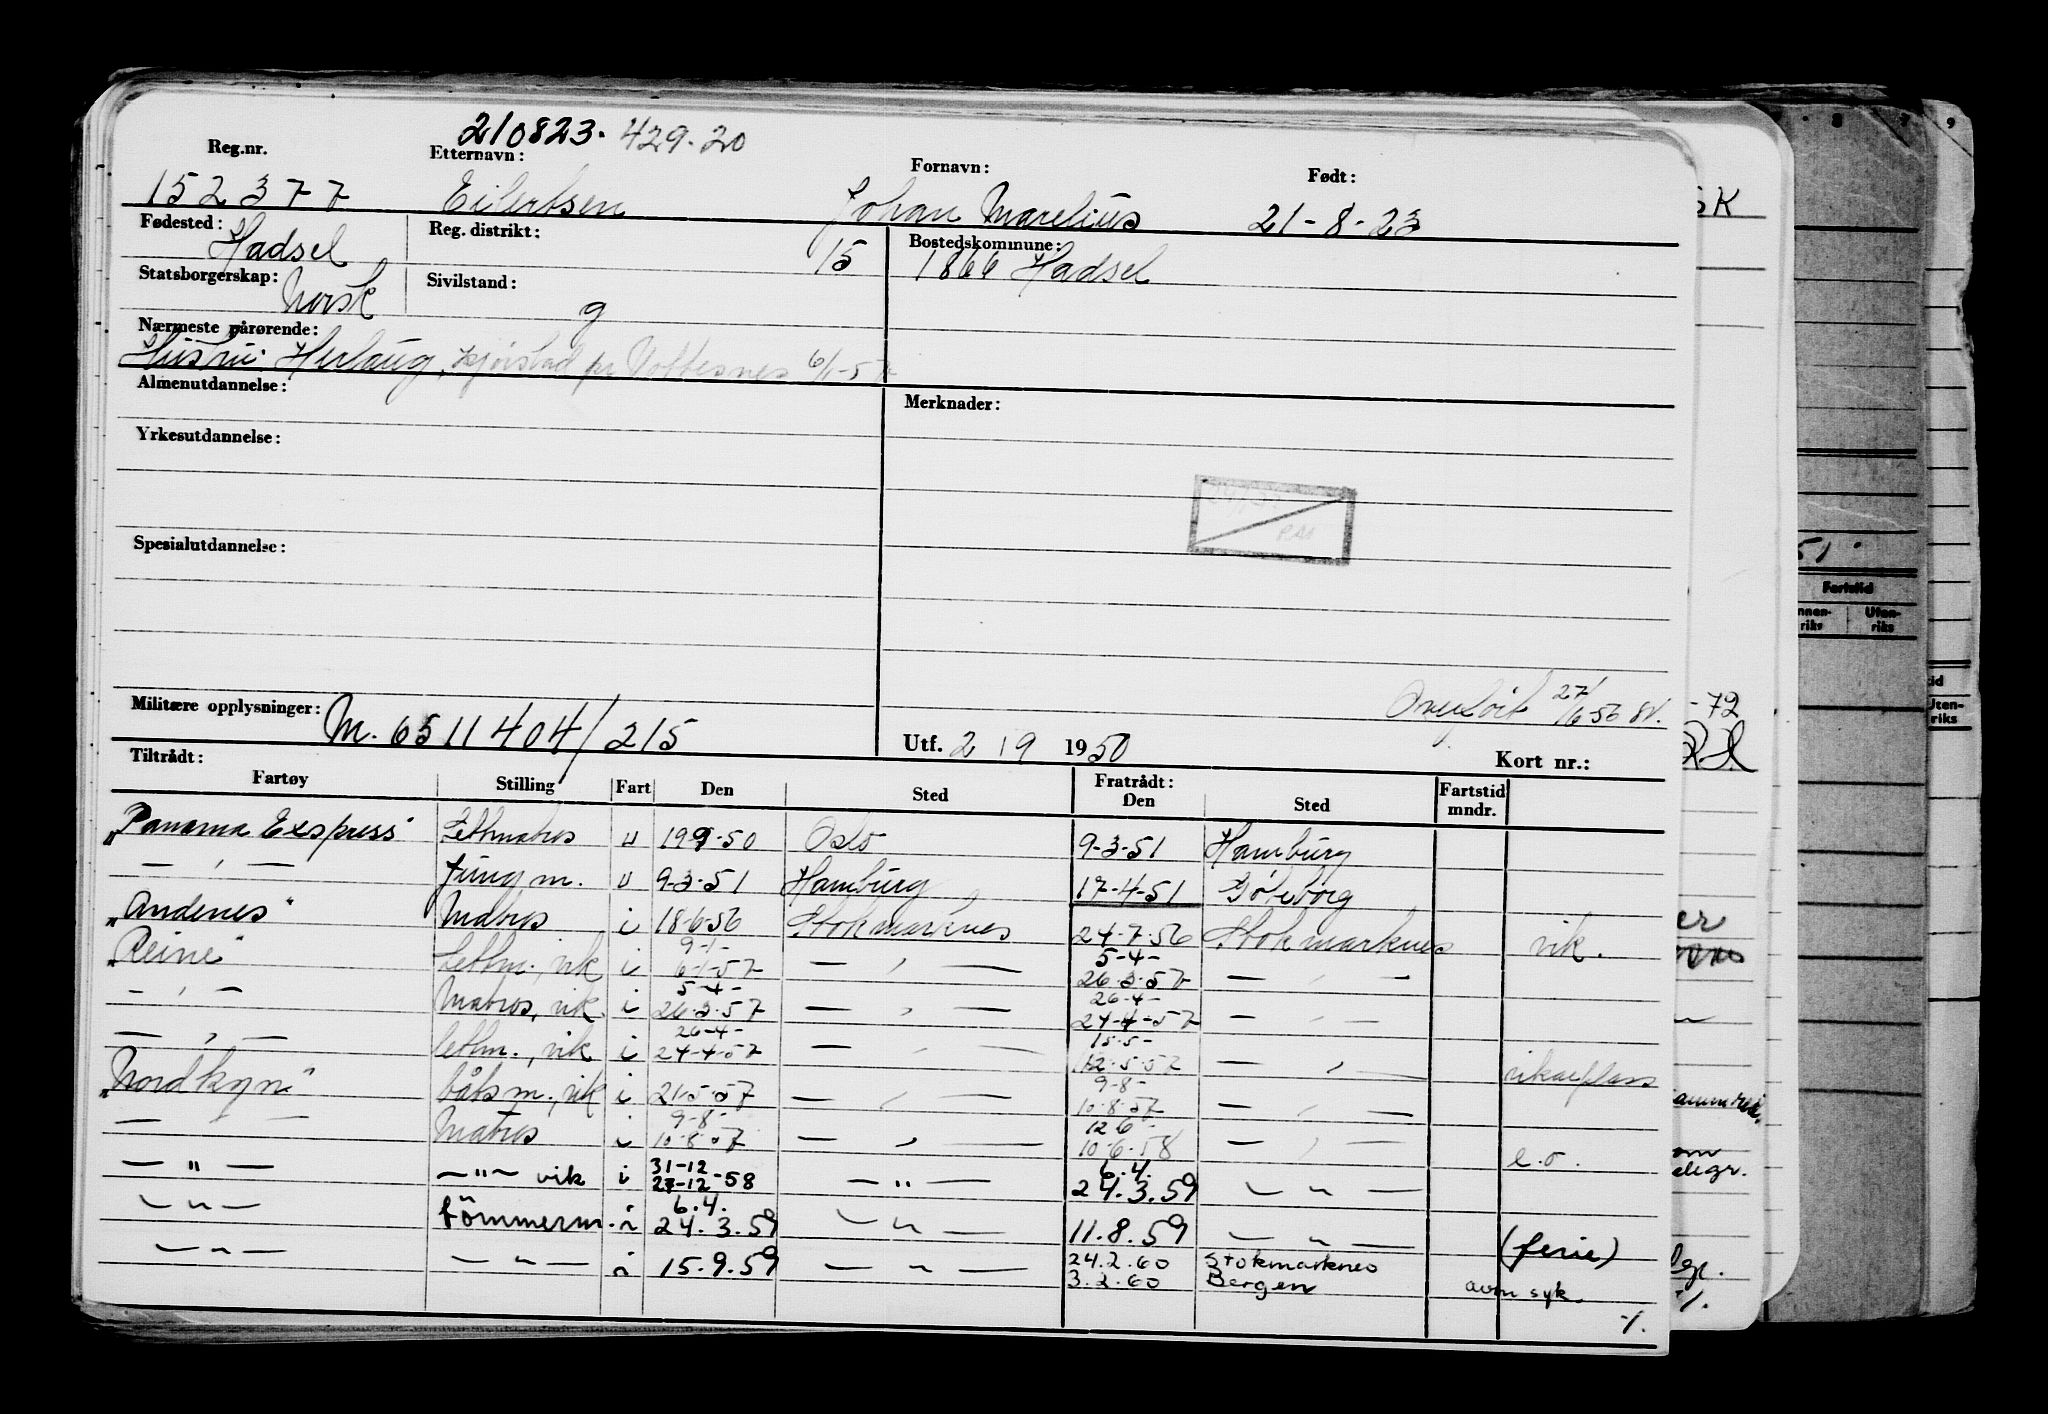 210823. 429.20
Reg.nr. Etternavn: Fornavn: Født:
152377 Eilertsen Johan Marelius 21-8-23
Fødested: Hadsel Reg. distrikt: 15 Bostedskommune: 1866 Hadsel
Statsborgerskap: Norsk Sivilstand: g
Nærmeste pårørende:
Hustru: Herlaug, 6/1-57
Almenutdannelse: Merknader:
Yrkesutdannelse:
Spesialutdannelse:
27/6 56
Militære opplysninger: M. 6511404/215 Utf. 2 / 9 1950 Kort nr.:
Tiltrådt: Fratrådt:
Fartøy Stilling Fart Den Sted Den Sted Fartstid mndr.
"Panama Express" Lettmatros u 19-9-50 Oslo 9-3-51 Hamburg
— " — Jungm. u 9-3-51 Hamburg 17-4-51 Göteborg
"Andenes" Matros i 18-6-56 Stokmarknes 24-7-56 Stokmarknes vik.
9-1- 5-4-
"Reine" Lettm., vik i 6-1-57 — " — 26-3-57 — " —
5-4- 26-4-
— " — Matros, vik. i 26-3-57 — " — 24-4-57 — " —
26-4- 15-5-
— " — lettm., vik i 24-4-57 — " — 12-5-57 — " — vikarplass
9-8-
"Nordkyn" båtsm., vik i 21-5-57 — " — 10-8-57 — " —
9-8- 12-6-
— " — Matros i 10-8-57 — " — 10-6-58 — " — e.o.
31-12 6.4.
— " — — " — vik i 27-12-58 — " — 24.3.59 — " —
6.4.
— " — tömmerm. i 24.3.59 — " — 11.8.59 — " — (ferie)
— " — — " — i 15.9.59 — " — 24.2.60 Stokmarknes
3.2.60 Bergen avm syk.
-/.
SK
-72
51.
Fartstid
8 7 9